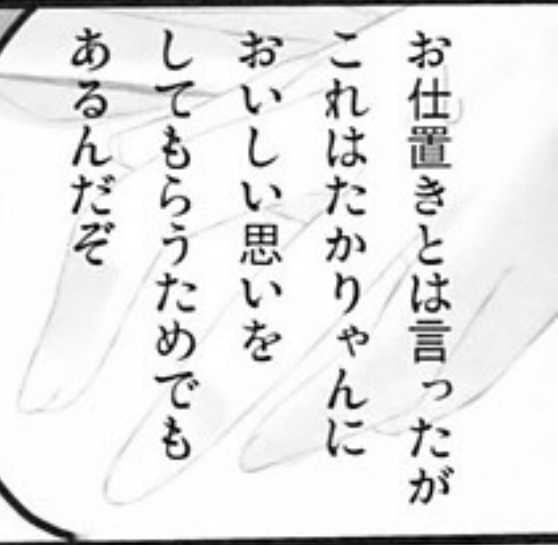 お仕置きとは言ったが
これはたかりゃんに
おいしい思いを
してもらうためでも
あるんだぞ